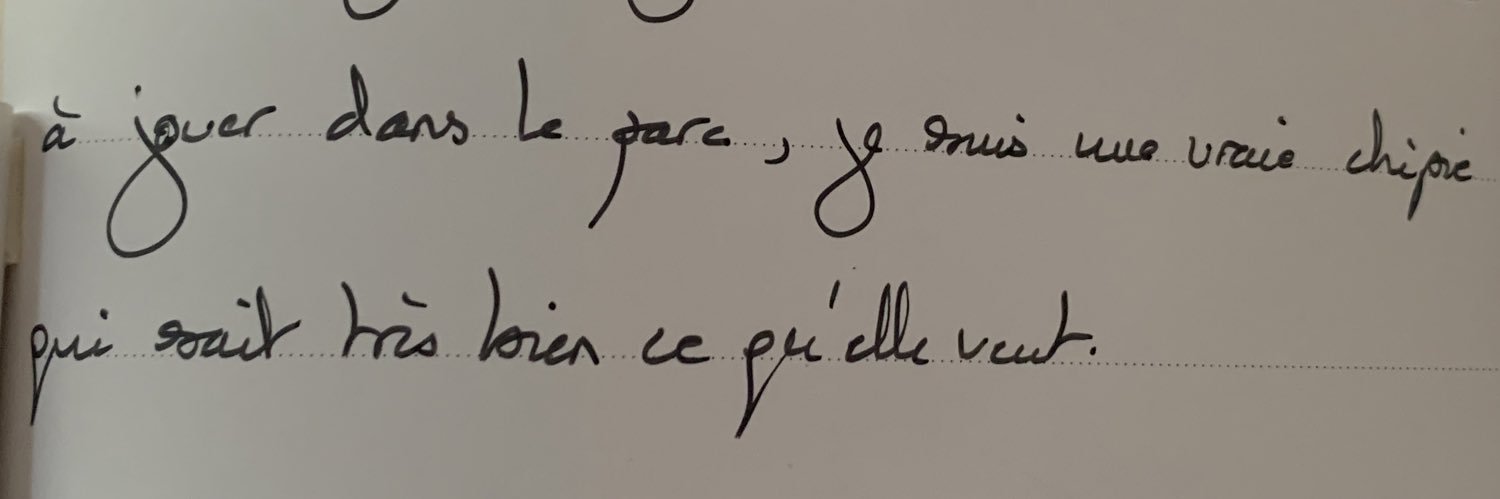 à jouer dans le parc, je suis une vraie chipie
qui sait très bien ce qu'elle veut.